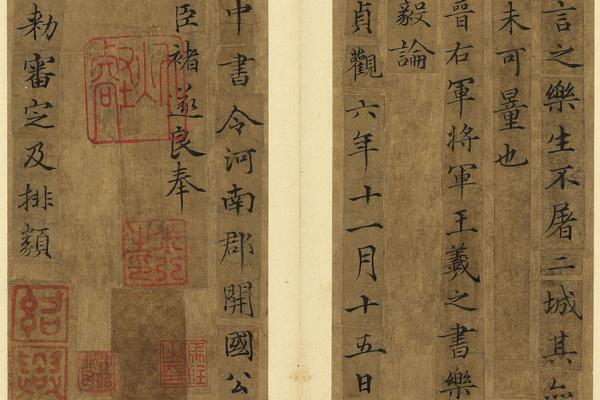 言之樂生不屠二城其
未可量也
晉右軍將軍王羲之書樂
毅論
貞觀六年十一月十五日
中書令河南郡開國公
臣褚遂良奉
勅審定及排類
紹興